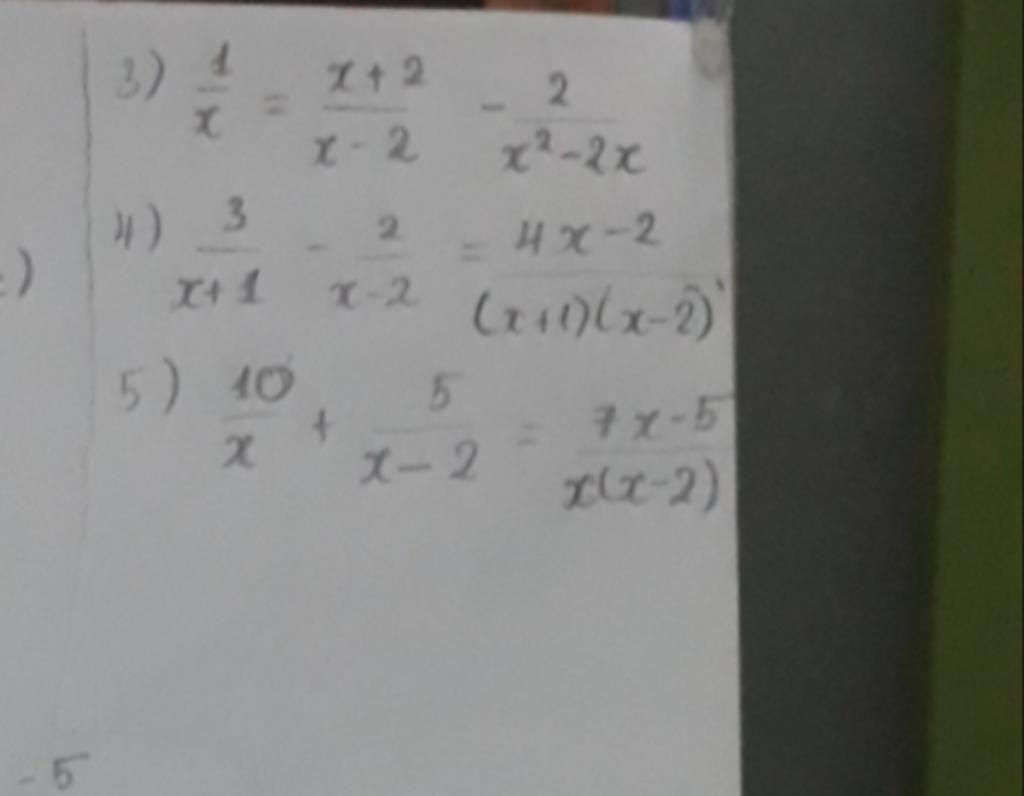 3) 1/x = x+2/x-2 - 2/x²-2x
4) 3/x+1 - 2/x-2 = 4x-2/(x+1)(x-2)
)
5) 10/x + 5/x-2 = 7x-5/x(x-2)
-5